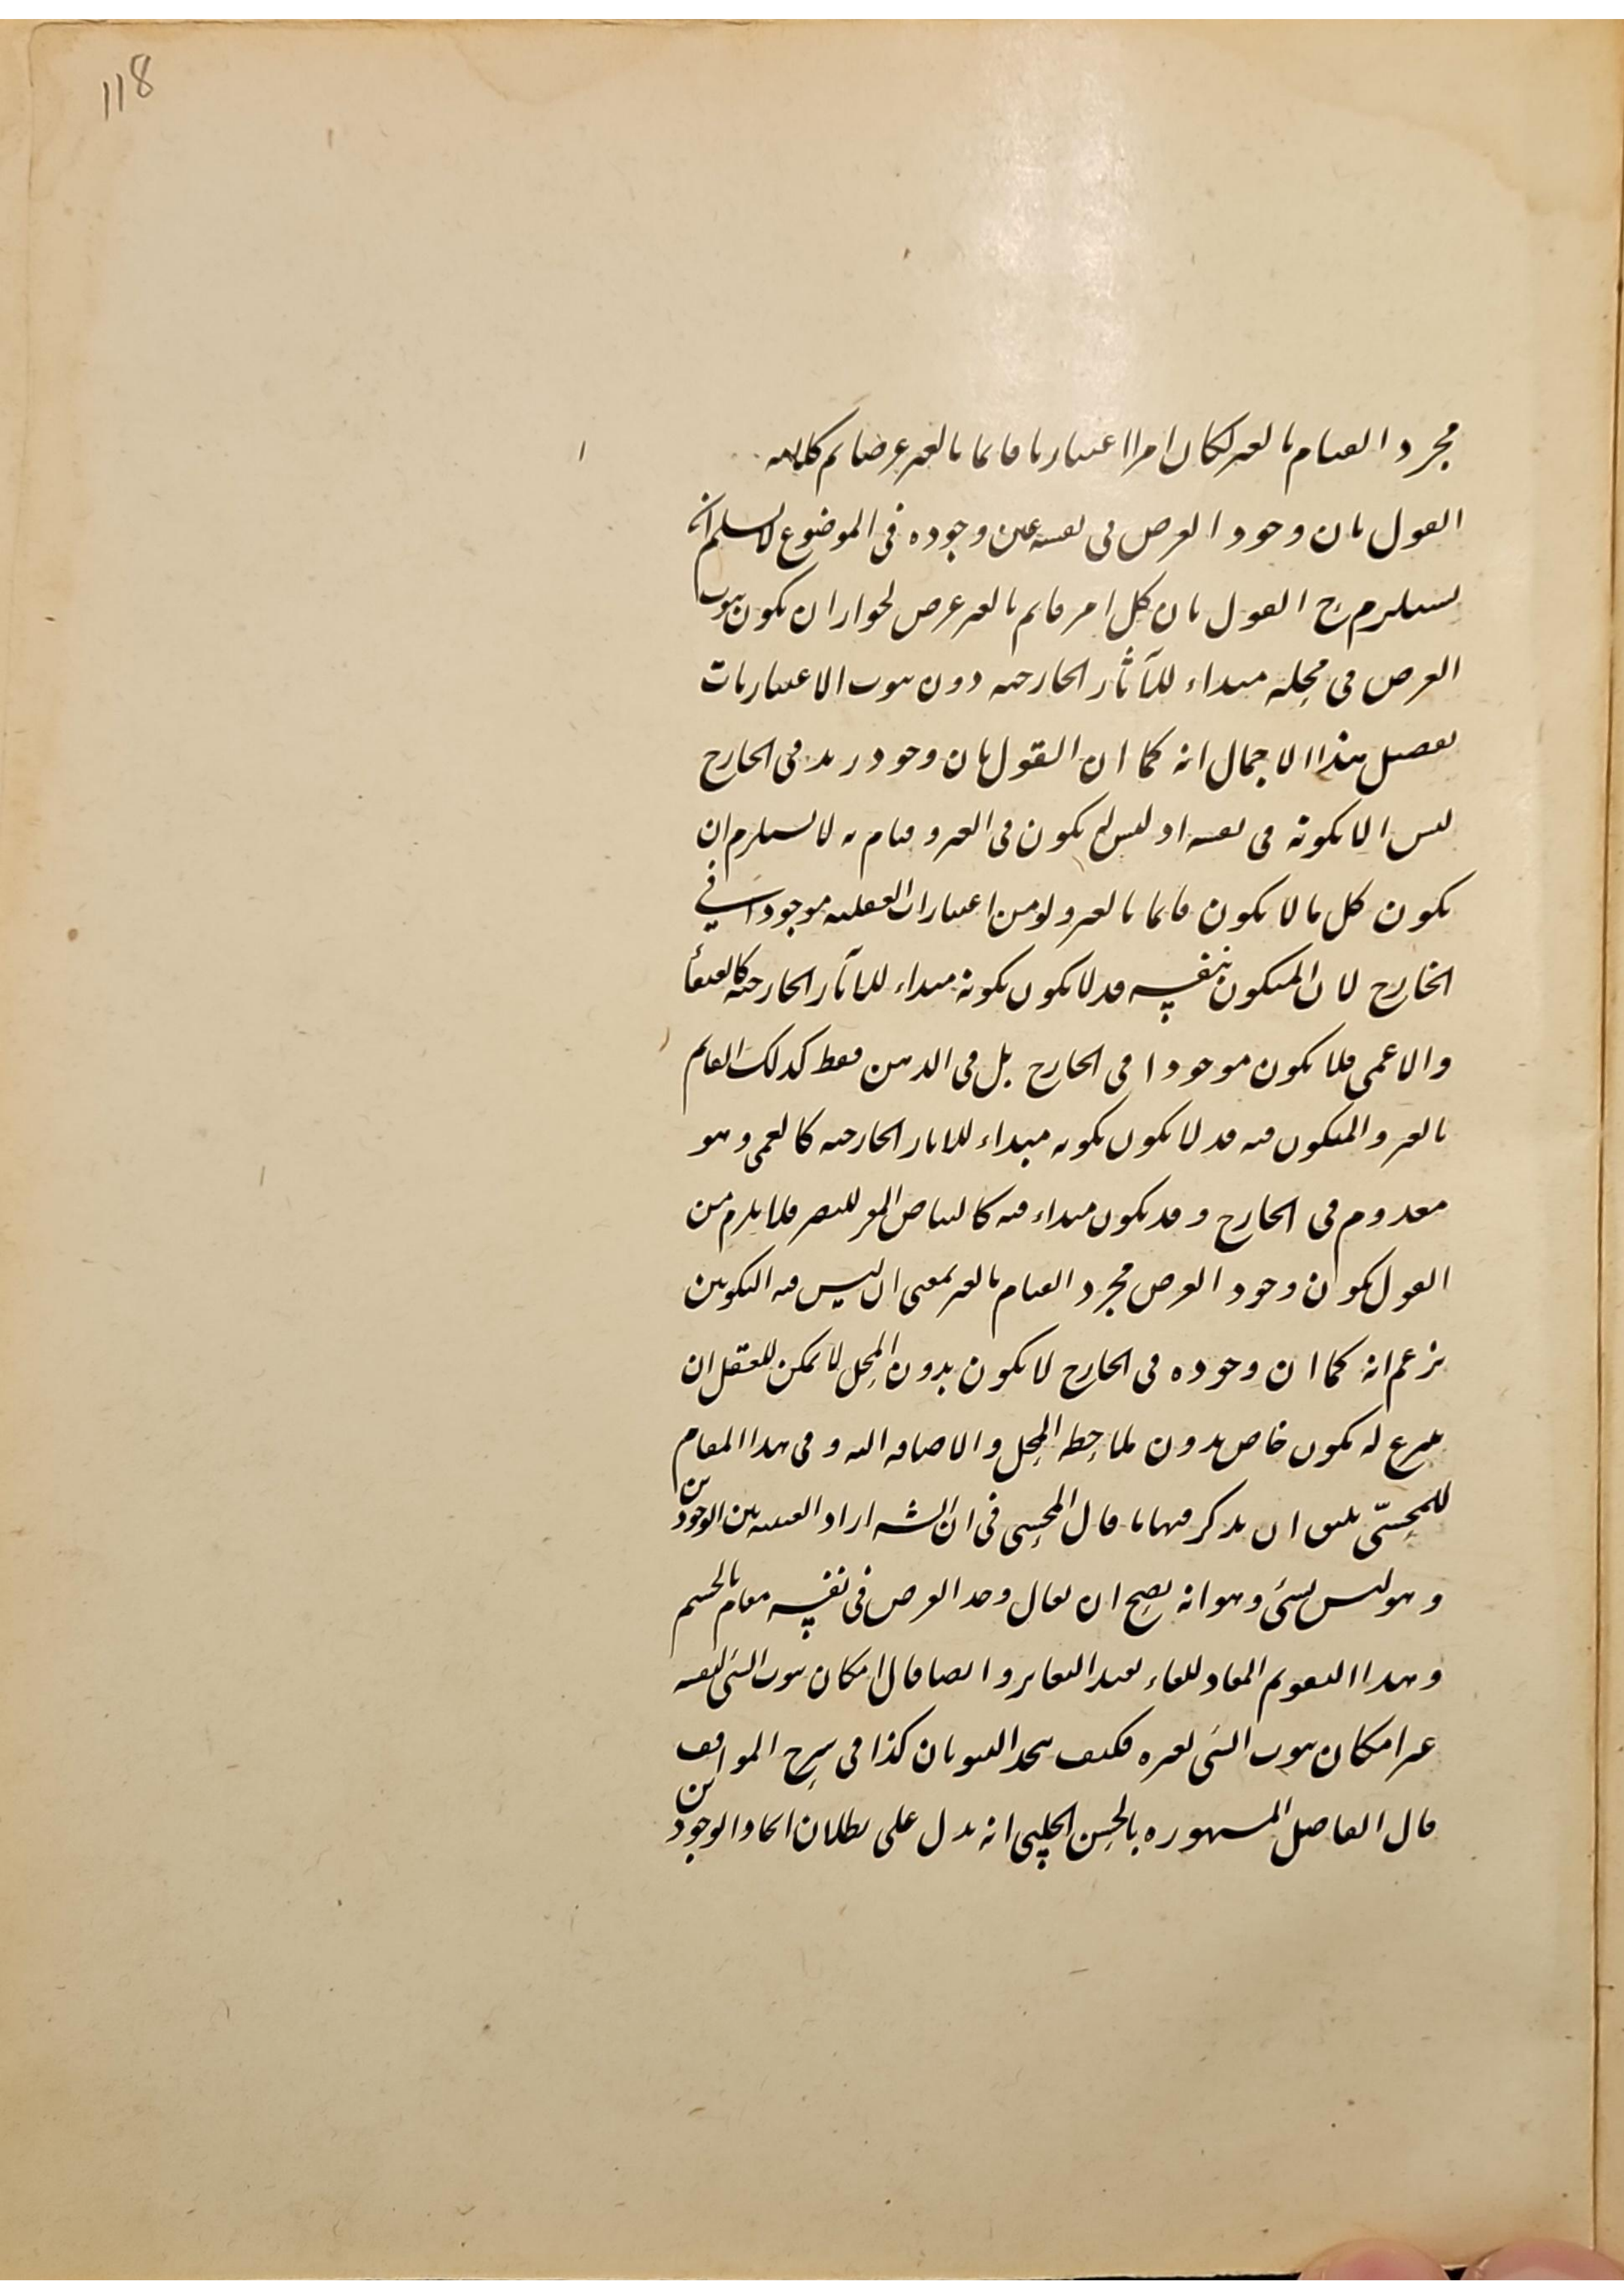 118
مجرد القيام بالغير لكان امرا اعتباريا قائما بالغير عرضا تم كلامه
القول بان وجود العرض فى نفسه عين وجوده فى الموضوع لا نسلم انه
يستلزم ح القول بان كل امر قايم بالغير عرض لجواز ان يكون ثبوت
العرض فى محله مبداء للآثار الخارجيه دون ثبوت الاعتباريات
تفصيل هذا الاجمال انه كما ان القول بان وجود زيد فى الخارج
ليس الا بكونه فى نفسه اذ ليس له يكون فى الغير و قيام به لا يستلزم ان
يكون كل ما لا يكون قائما بالغير ولو من اعتبارات العقليه موجودا فى
الخارج لان المتكون بنفسه قد لا يكون بكونه مبداء للآثار الخارجيه كالعنقا
والاعمى فلا يكون موجودا فى الخارج بل فى الذهن فقط كذلك القايم
بالغير والمتكون فيه قد لا يكون بكونه مبداء للاثار الخارجيه كالعمى وهو
معدوم فى الخارج و قد يكون مبداء فيه كالبياض للبصر فلا يلزم من
القول بكون وجود العرض مجرد القيام بالغير بمعنى ان ليس فيه التكوين
يزعم انه كما ان وجوده فى الخارج لا يكون بدون المحل لا يمكن للعقل ان
ينتزع له بكون خاص بدون ملاحظه المحل والاضافه اليه و فى هذا المقام
للمحشّى يليق ان يذكر فيها ما قال المحشى فى ان الشه اراد العينيه بين الوجودين
و هو ليس بشئ وهو انه يصح ان يقال وجد العرض فى نفسه فقام بالجسم
و هذا التقويم المفاد للفاء يفيد التغاير و ايضا قال امكان ثبوت الشئ لنفسه
غير امكان ثبوت الشئ لغيره فكيف يتحد الثبوتان كذا فى شرح المواقف
قال الفاضل المشهوره بالحسن الچلپى انه يدل على بطلان اتحاد الوجودين